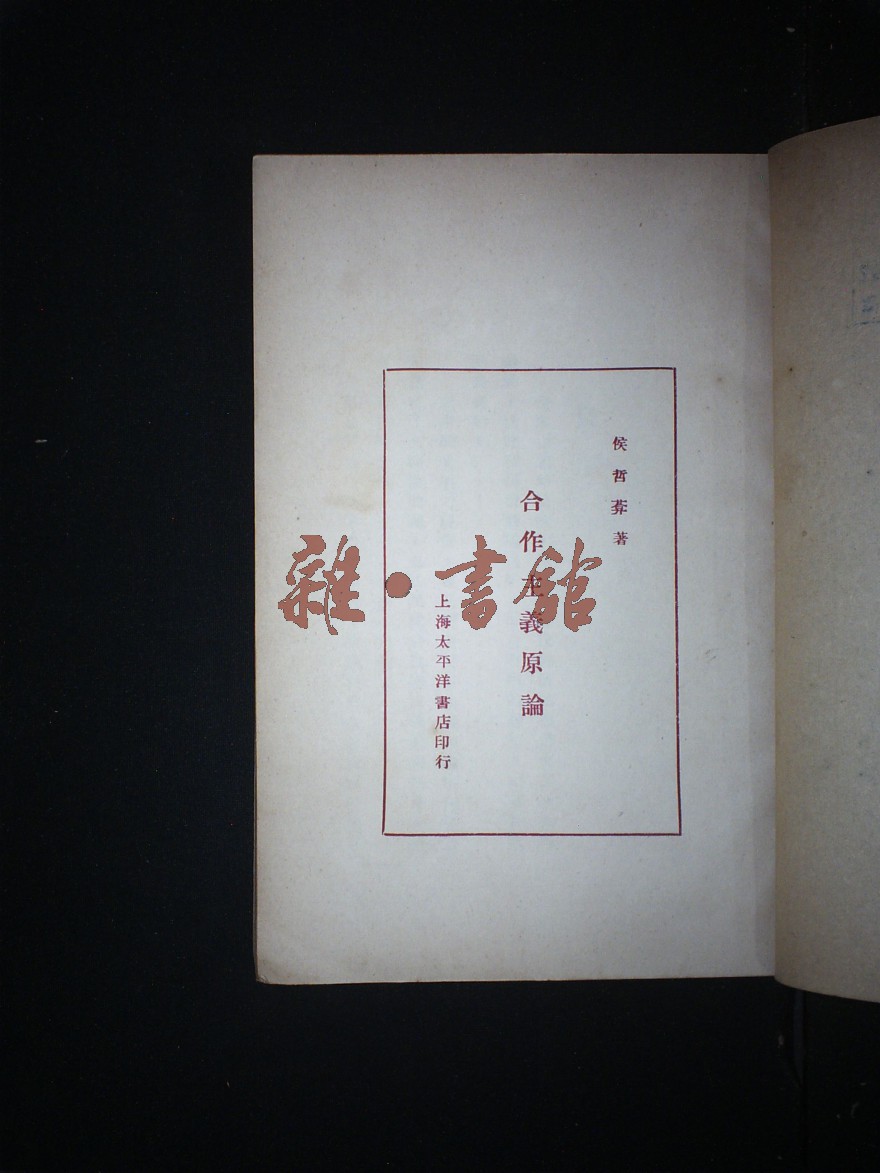 侯哲葊著
合作主義原論
上海太平洋書店印行
雜·書館